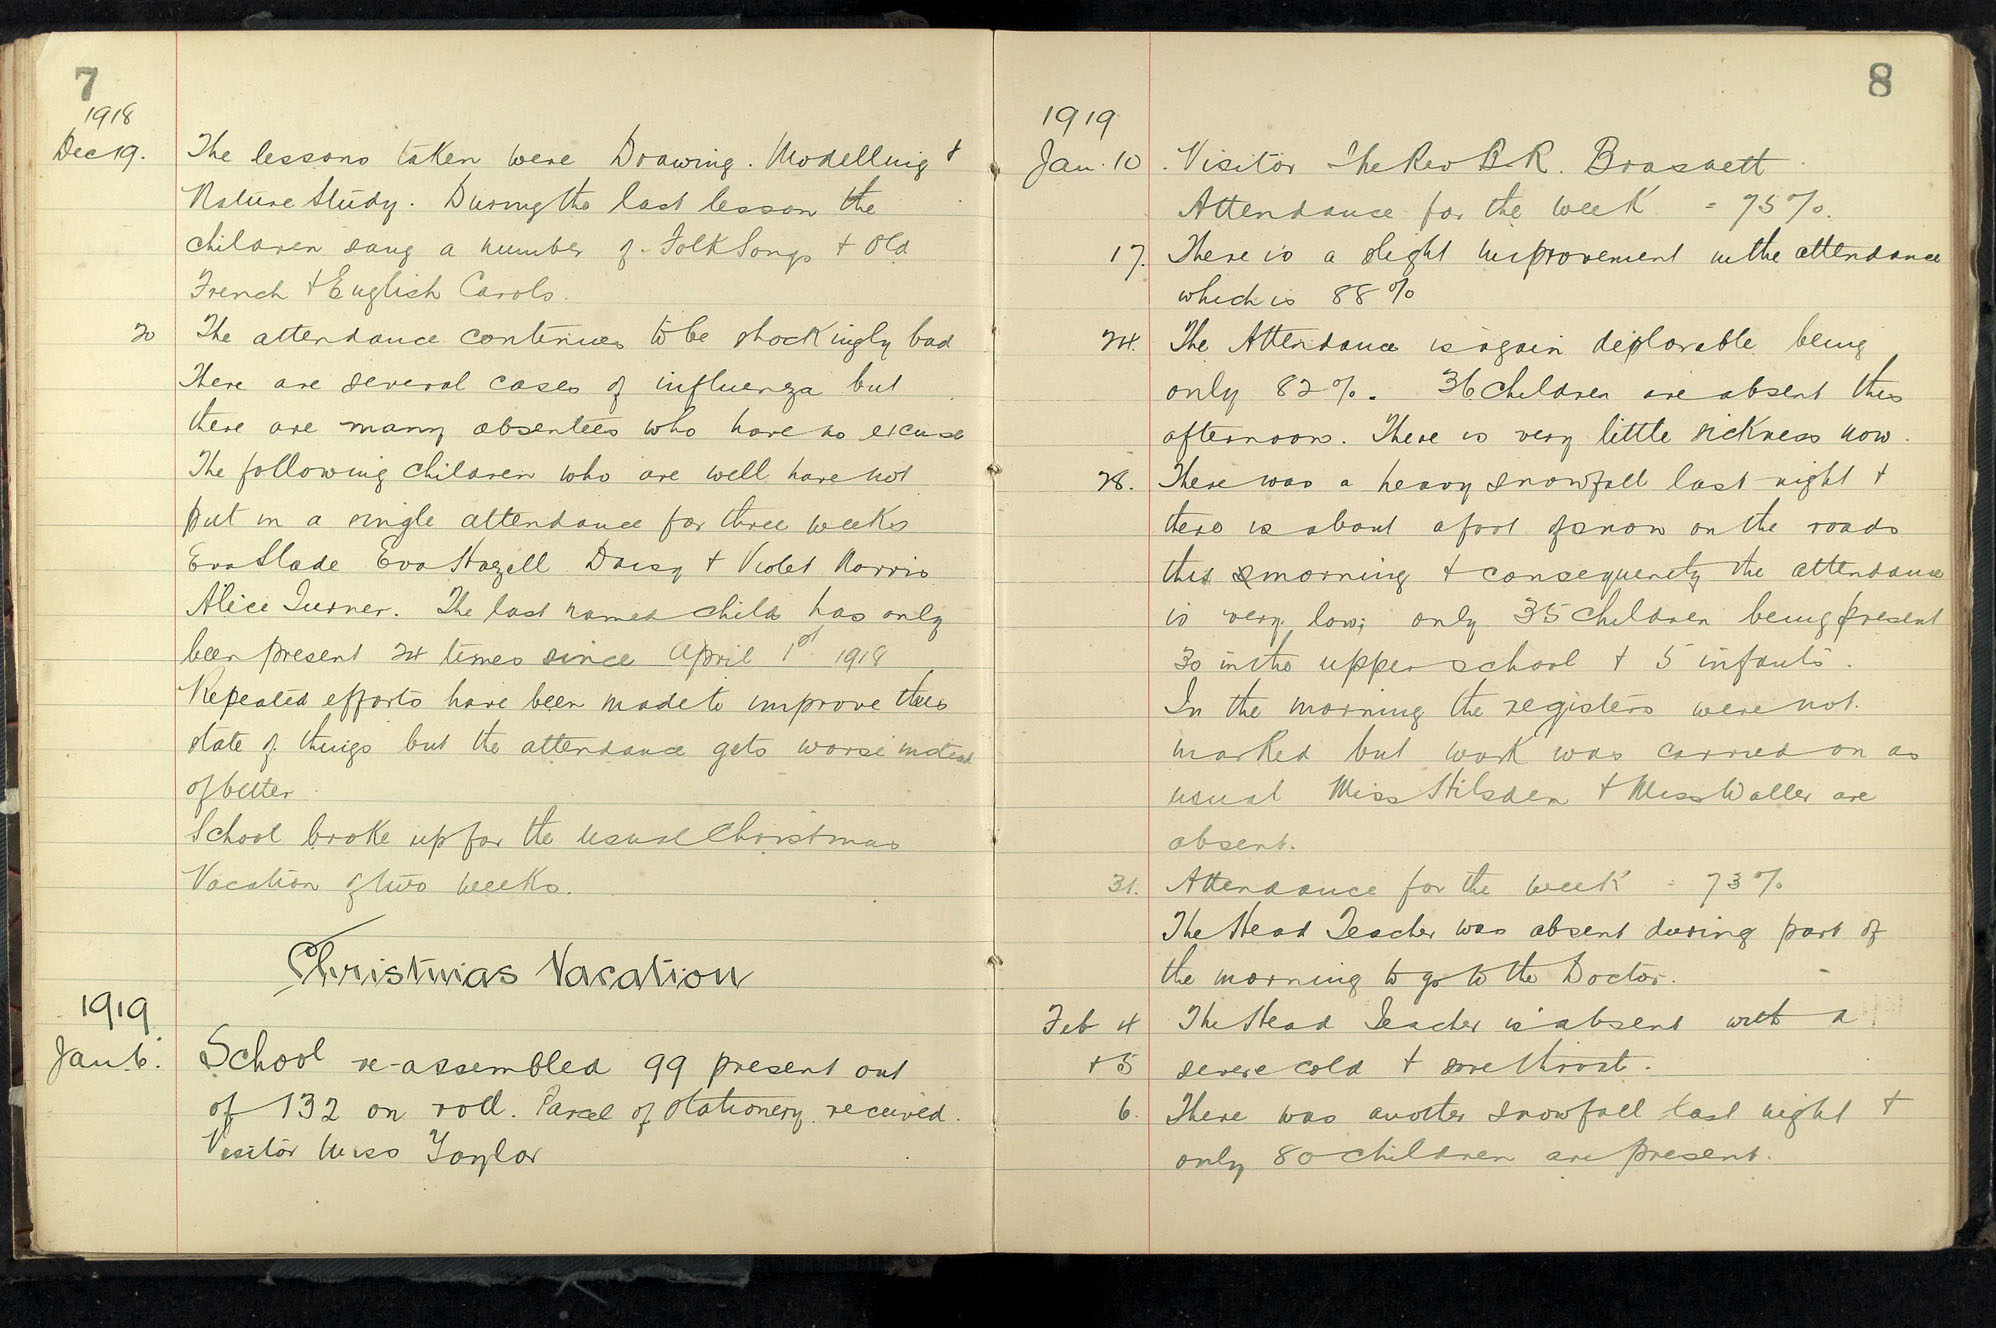 7
1918
Dec 19. The lessons taken were Drawing. Modelling &
Nature Study. During the last lesson the
children sang a number of Folk Songs & Old
French & English Carols.
20 The attendance continues to be shockingly bad
There are several cases of influenza but
there are many absentees who have no excuse
The following children who are well have not
put in a single attendance for three weeks
Eva Slade Eva Hazell Daisy & Violet Norris
Alice Turner. The last named child has only
been present 24 times since April 1st 1918
Repeated efforts have been made to improve this
state of things but the attendance gets worse instead
of better
School broke up for the usual Christmas
Vacation of two weeks.
Christmas Vacation
1919
Jan 6. School re-assembled 99 present out
of 132 on roll. Parcel of stationery received.
Visitor Miss Taylor
8
1919
Jan. 10. Visitor The Rev B R. Brasnett
Attendance for the week = 95%.
17. There is a slight improvement in the attendance
which is 88%
24. The Attendance is again deplorable being
only 82%. 36 children are absent this
afternoon. There is very little sickness now.
28. There was a heavy snowfall last night &
there is about a foot of snow on the roads
this morning & consequently the attendance
is very low; only 35 children being present
30 in the upper school & 5 infants.
In the morning the registers were not
marked but work was carried on as
usual Miss Hilsden & Miss Waller are
absent.
31. Attendance for the week = 73%
The Head Teacher was absent during part of
the morning to go to the Doctor.
Feb 4 The Head Teacher is absent with a
& 5 severe cold & sore throat.
6. There was another snowfall last night &
only 80 children are present.